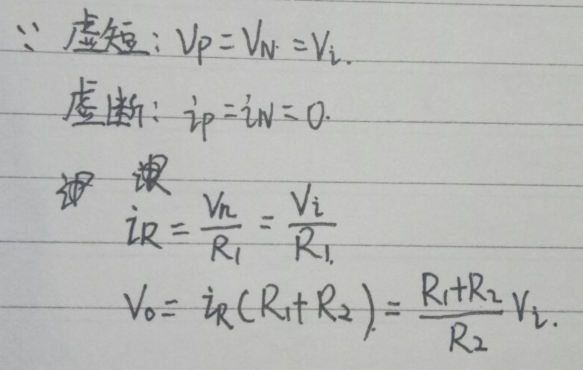 ∵ 虚短: Vp = VN = Vi.
虚断: ip = iN = 0.
iR = Vn/R1 = Vi/R1.
Vo = iR(R1+R2) = (R1+R2)/R2 Vi.